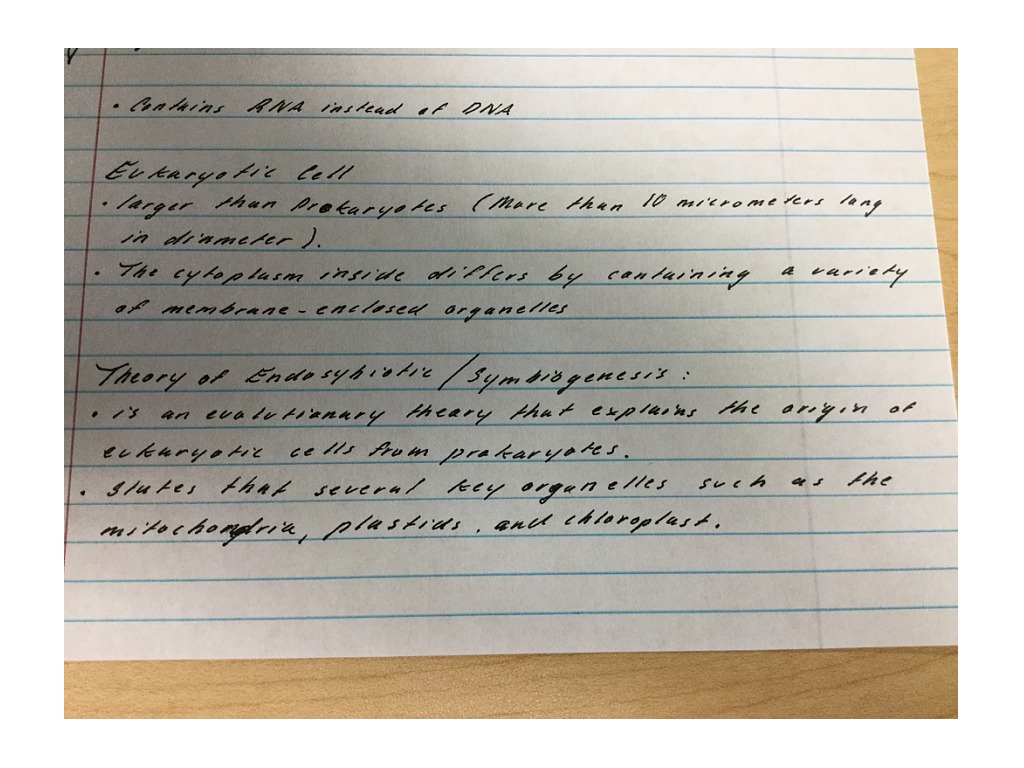 • Contains RNA instead of DNA
Eukaryotic Cell
• larger than Prokaryotes (More than 10 micrometers long
in diameter).
• The cytoplasm inside differs by containing a variety
of membrane-enclosed organelles
Theory of Endosybiotic / Symbiogenesis:
• is an evolutionary theory that explains the origin of
eukaryotic cells from prokaryotes.
• States that several key organelles such as the
mitochondria, plastids, and chloroplast.